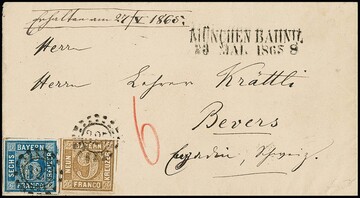 Erhalten am 27/V 1865.
MÜNCHEN BAHNH.
23 MAI. 1865 8
Herrn
Herrn Lehrer Krättli
Bevers
Engadin, Schweiz.
6
BAYERN
SECHS KREUZER
FRANCO
BAYERN
NEUN KREUZER
FRANCO